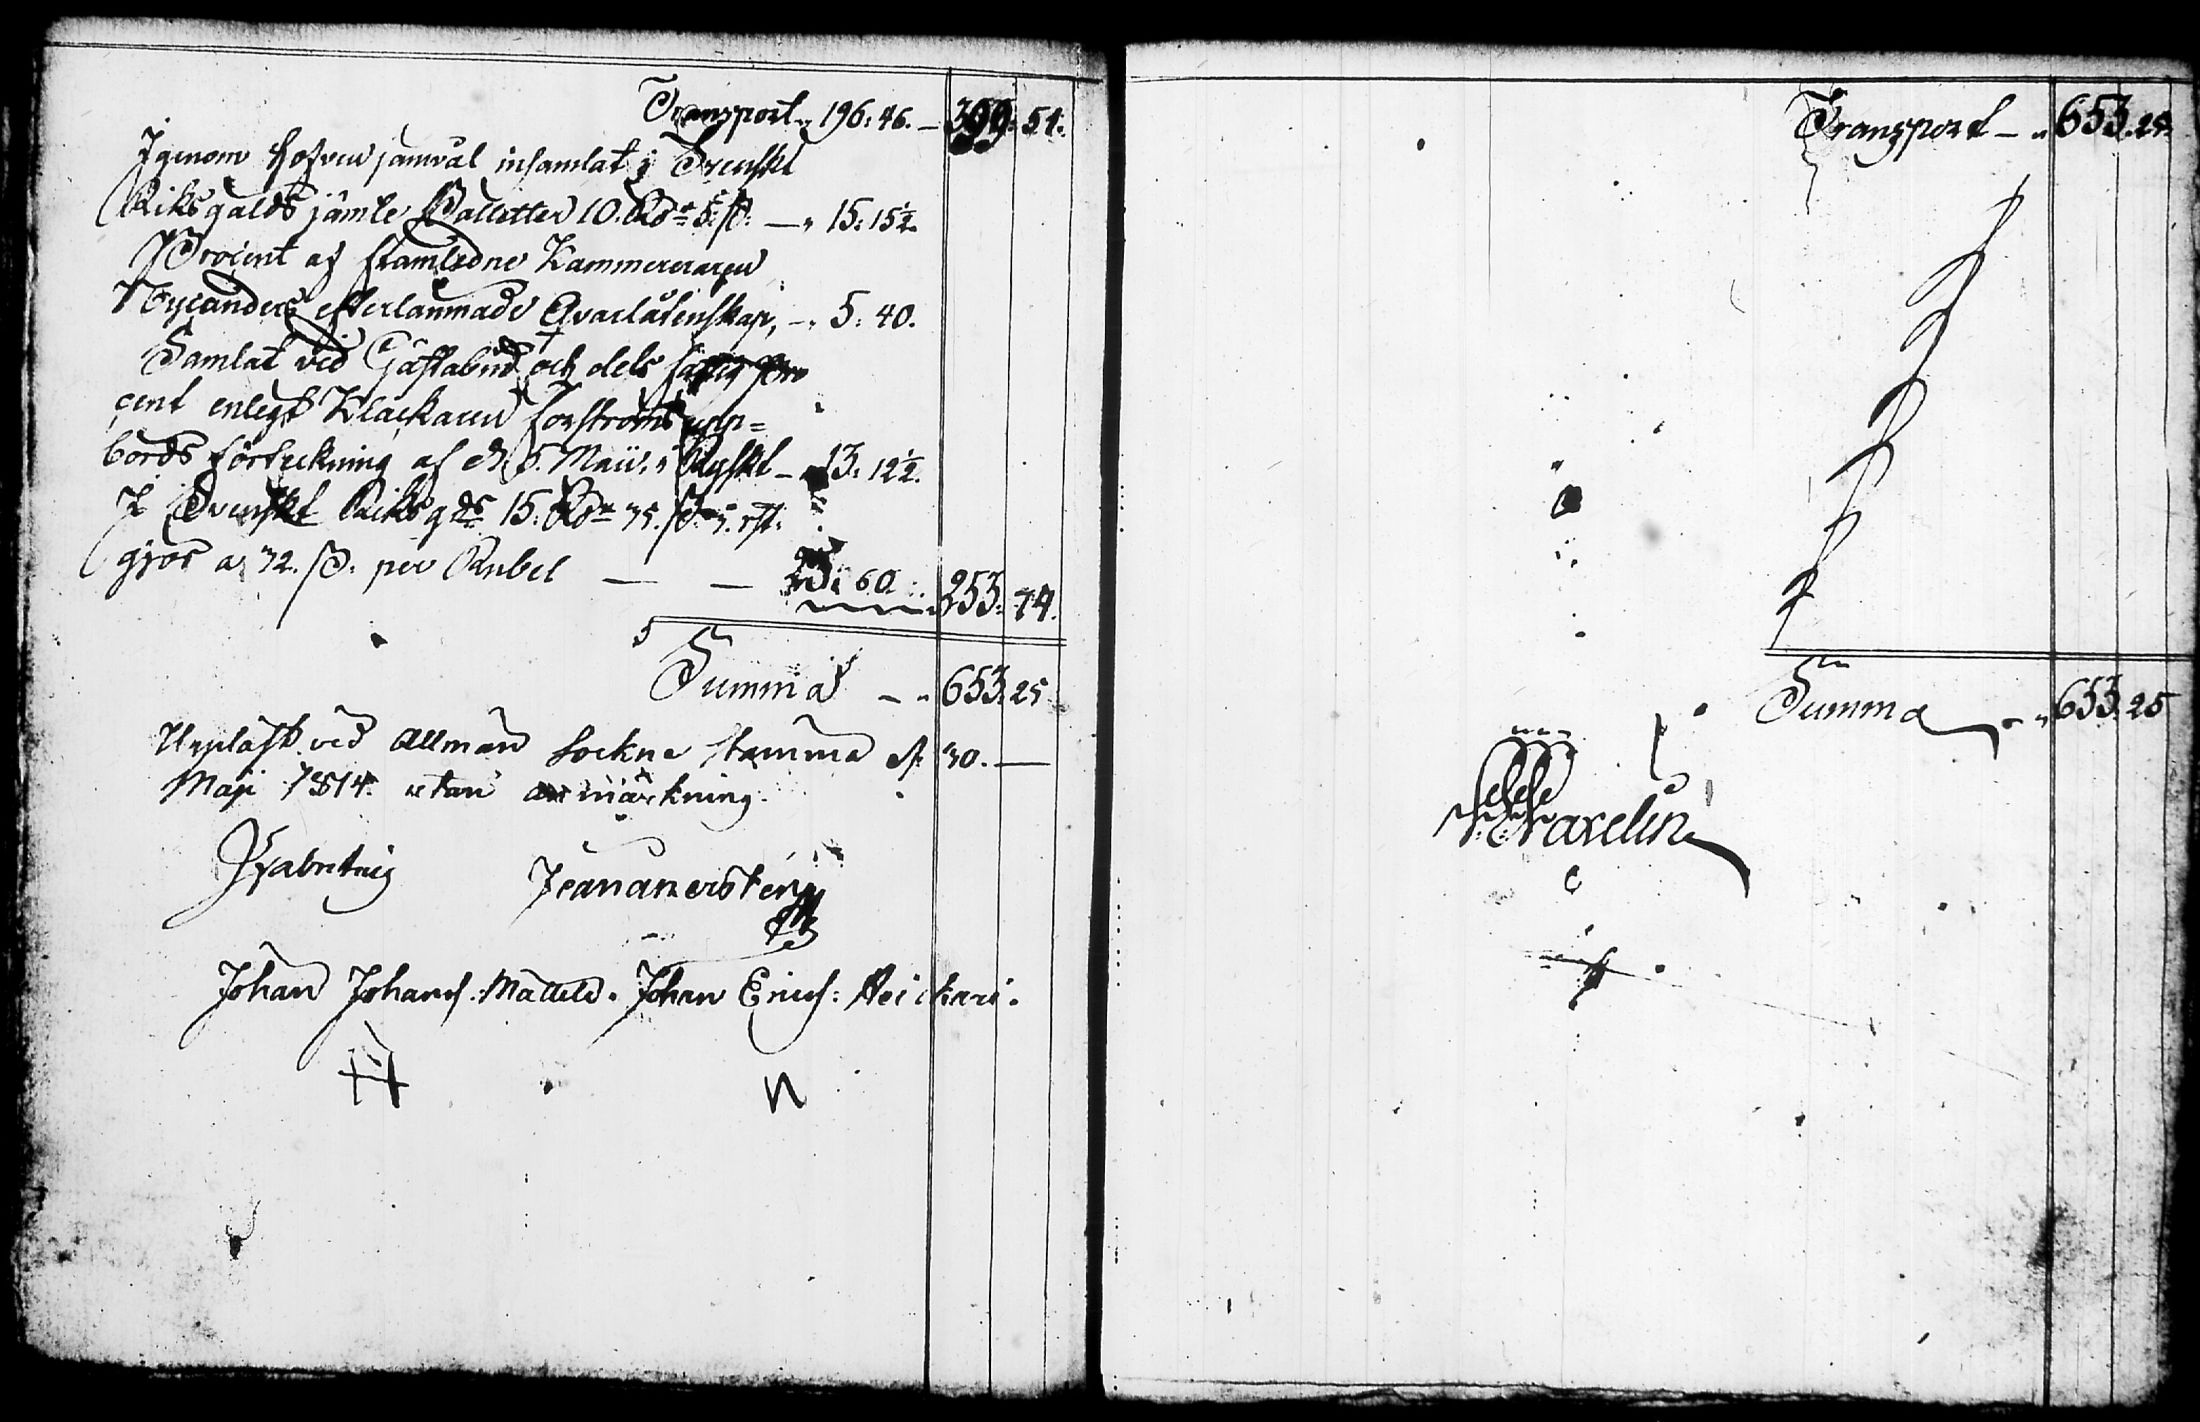 Transport „ 196: 46. — 399: 51.
Igenom Hofven jämväl insamlat i Svenskt
Riksgälds jämte Polletter 10. Rdr 5. ß. — „ 15: 15½.
Procent af framledne Kammereraren
Nylanders efterlämnade Qvarlåtenskap, — „ 5: 40.
Samlat vid Gästabud och dels
cent enligt Klåckaren Forströms upp=
bords förteckning af d. 5. Maii, i Ryskt — „ 13: 12½.
I Svenskt Riksgds 15. Rdr 35. ß 5. rst.
giör a 32. ß. per Rubel — — 60 „ 253: 74.
Summa — „ 653: 25
Upläst vid Allmän Sockne stämma d. 30. —
Maji 1814. utan anmärkning.
Johan Johans. Mattela. Johan Erics: Heickari.
N
Transport — „ 653. 25.
Summa — „ 653. 25